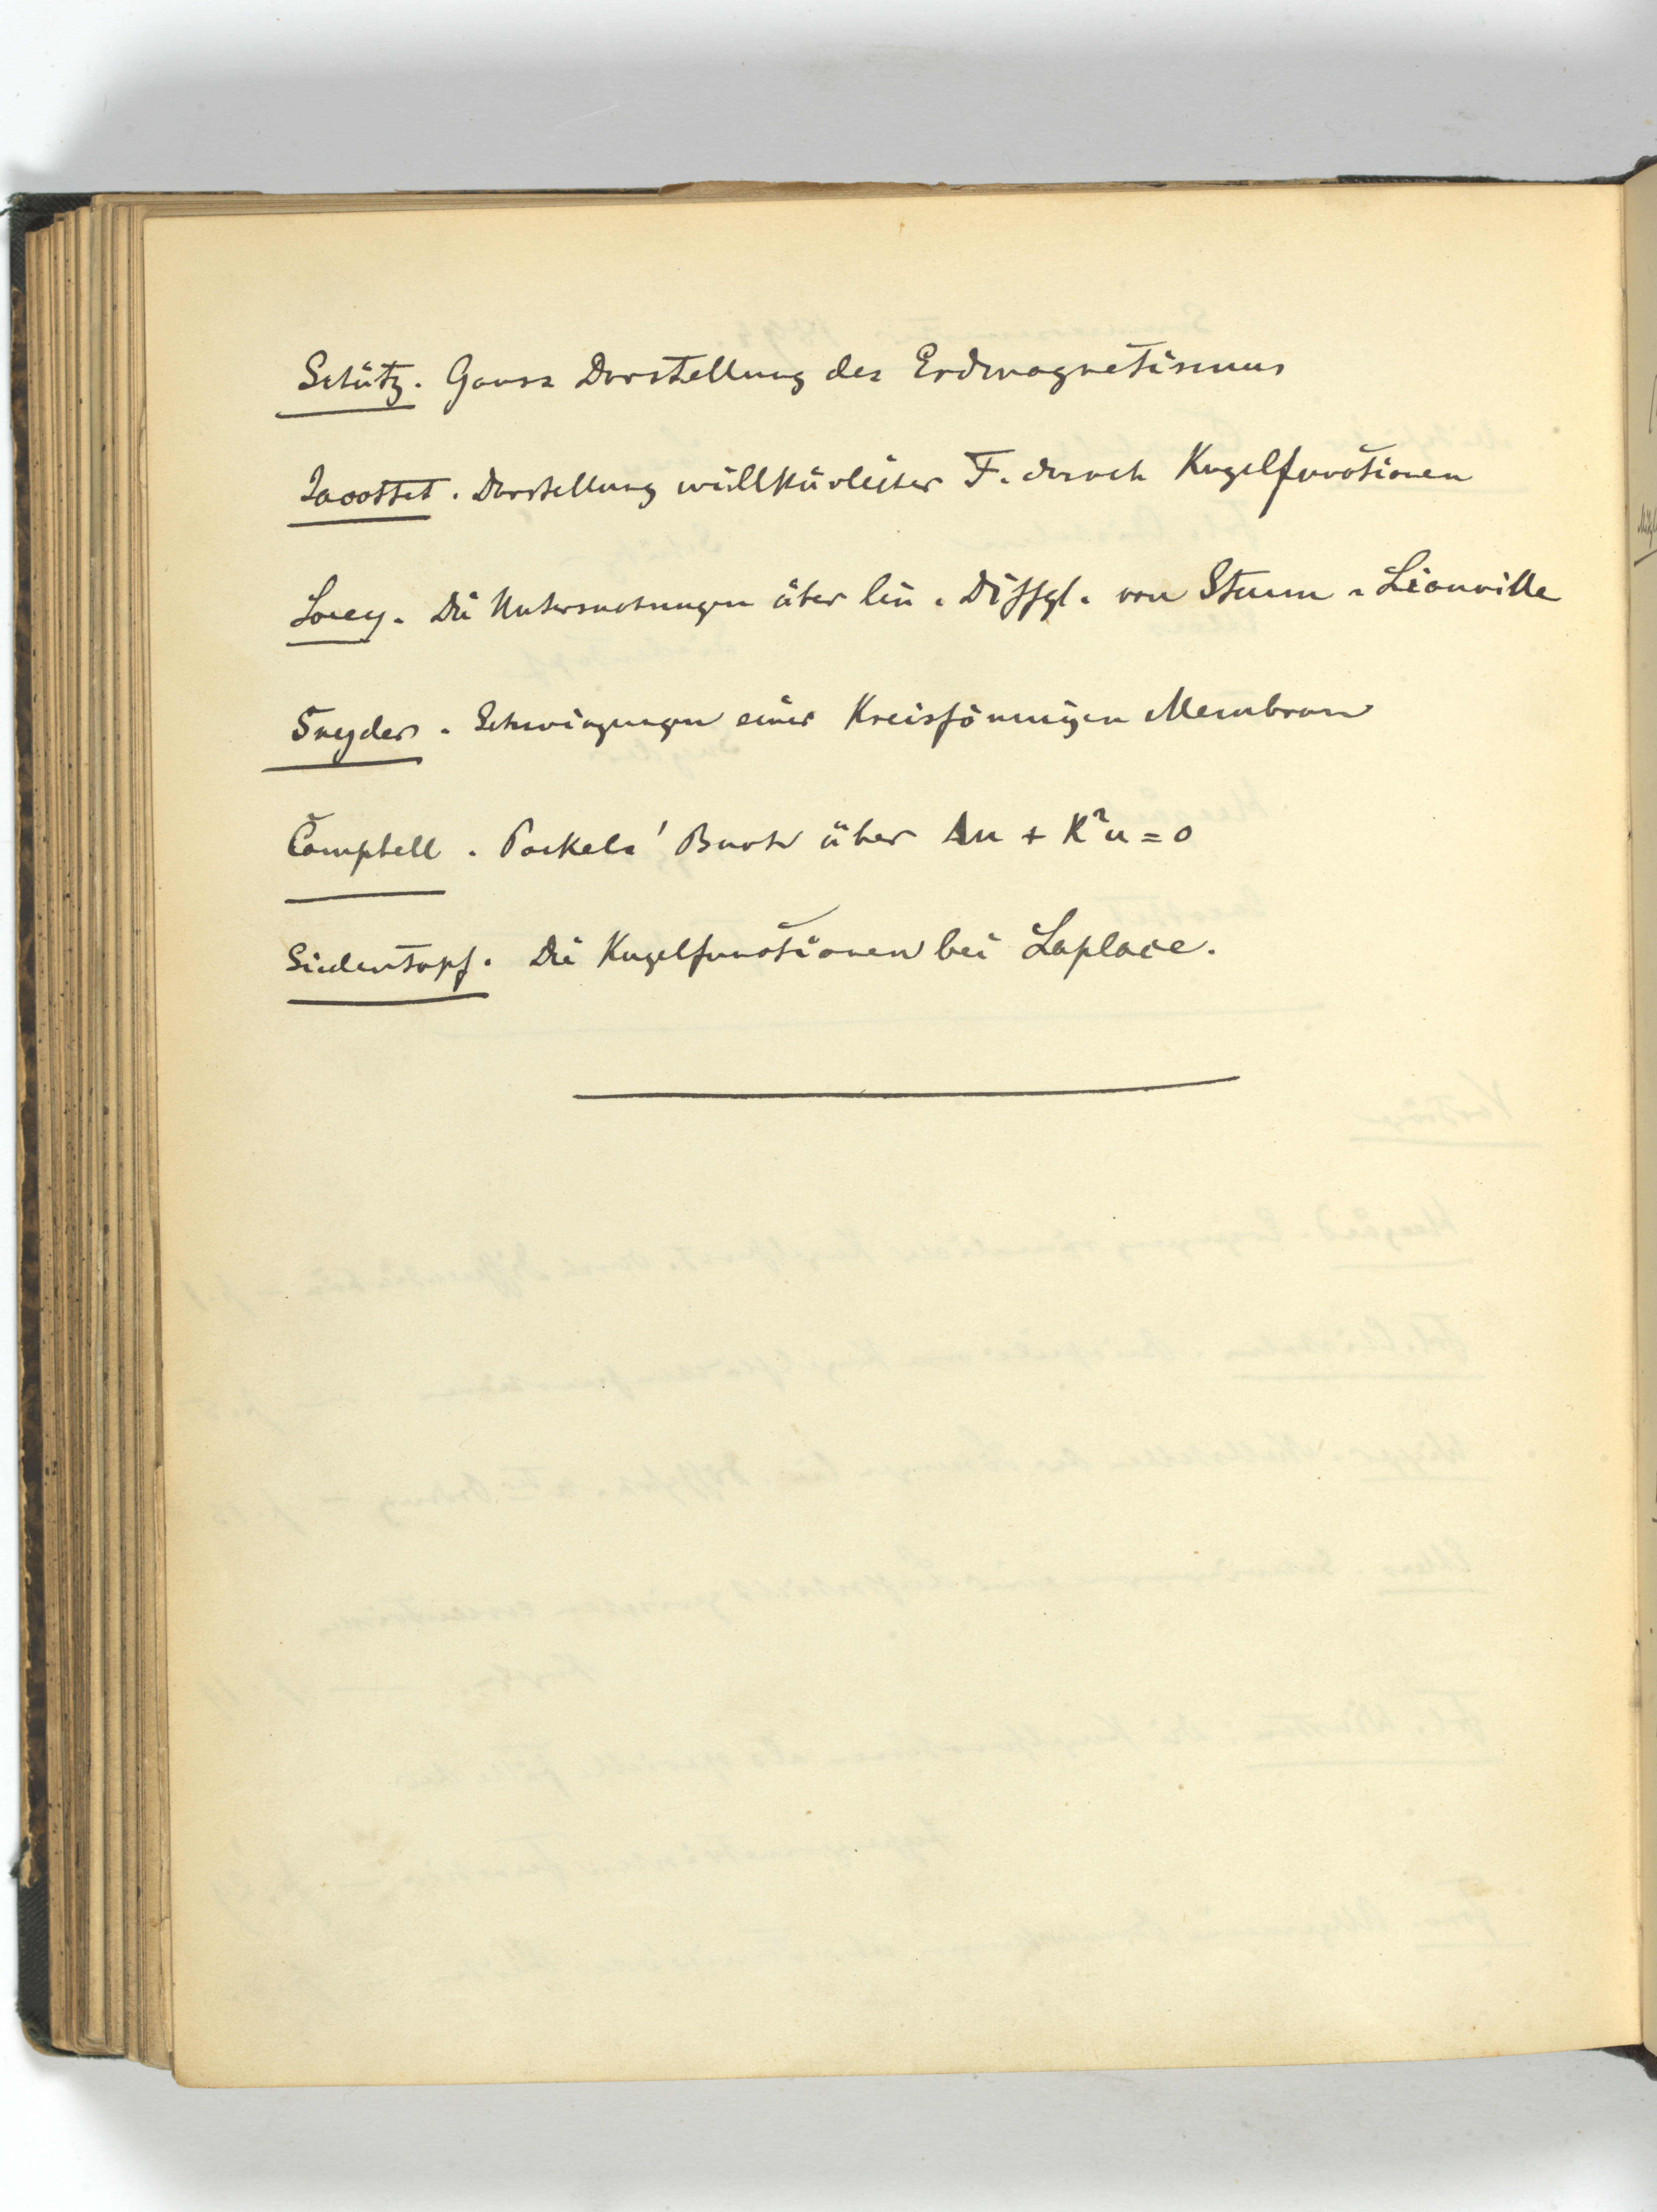 Schütz. Gauss Darstellung des Erdmagnetismus
Jaccottet. Darstellung willkürlicher F. durch Kugelfunctionen
Lorey. Die Untersuchungen über lin. Diffgl. von Sturm - Liouville
Snyder. Schwingungen einer Kreisförmigen Membran
Campbell. Pockels' Buch über Δu + K²u = 0
Siedentopf. Die Kugelfunctionen bei Laplace.